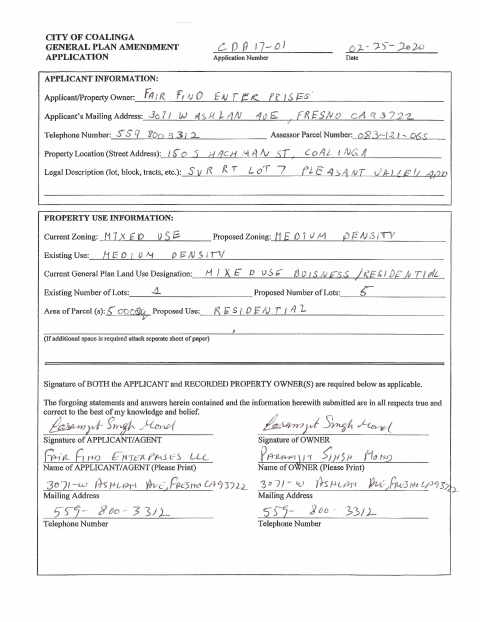 CITY OF COALINGA
GENERAL PLAN AMENDMENT
APPLICATION
CDA 17-01
Application Number
02-25-2020
Date
APPLICANT INFORMATION:
Applicant/Property Owner: FAIR FIND ENTERPRISES
Applicant's Mailing Address: 3071 W ASHLAN AVE, FRESNO CA 93722
Telephone Number: 559 800 3312 Assessor Parcel Number: 083-121-065
Property Location (Street Address): 150 S HACHMAN ST, COALINGA
Legal Description (lot, block, tracts, etc.): SUR RT LOT 7 PLEASANT VALLEY ADD
PROPERTY USE INFORMATION:
Current Zoning: MIXED USE Proposed Zoning: MEDIUM DENSITY
Existing Use: MEDIUM DENSITY
Current General Plan Land Use Designation: MIXED USE BUISNESS/RESIDENTIAL
Existing Number of Lots: 1 Proposed Number of Lots: 5
Area of Parcel (s): 50000sq Proposed Use: RESIDENTIAL
(If additional space is required attach separate sheet of paper)
Signature of BOTH the APPLICANT and RECORDED PROPERTY OWNER(S) are required below as applicable.
The forgoing statements and answers herein contained and the information herewith submitted are in all respects true and
correct to the best of my knowledge and belief.
Paramjit Singh Mond Paramjit Singh Mond
Signature of APPLICANT/AGENT Signature of OWNER
FAIR FIND ENTERPRISES LLC PARAMJIT SINGH MOND
Name of APPLICANT/AGENT (Please Print) Name of OWNER (Please Print)
3071-W ASHLAN AVE, FRESNO CA 93722 3071-W ASHLAN AVE, FRESNO CA 93722
Mailing Address Mailing Address
559-800-3312 559-800-3312
Telephone Number Telephone Number